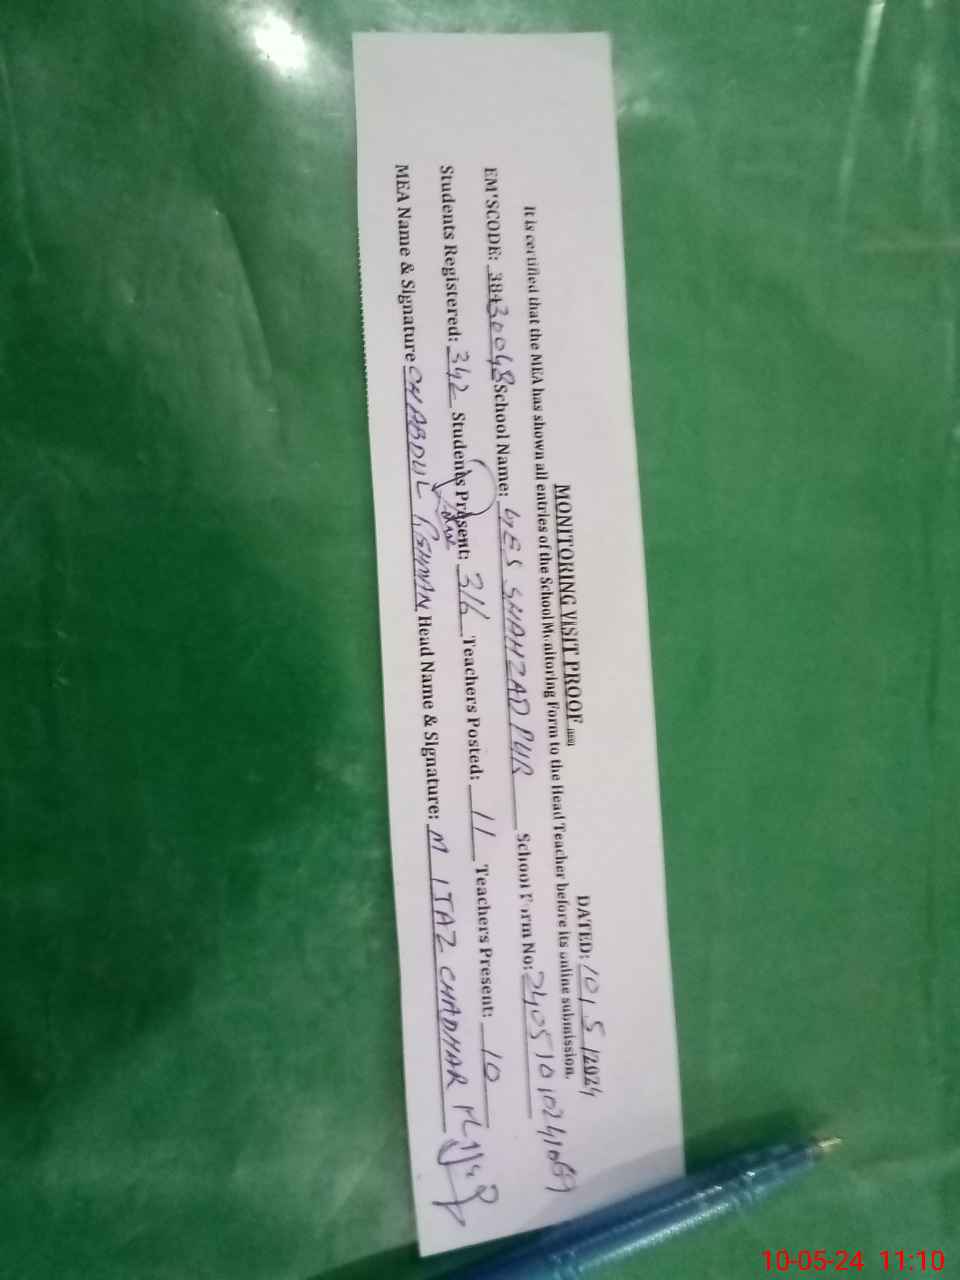 MONITORING VISIT PROOF
DATED: 10/5/2024
It is certified that the MEA has shown all entries of the School Monitoring Form to the Head Teacher before its online submission.
EM'SCODE: 38430048 School Name: GES SHAHZAD PUR School Form No:
Students Registered: 342 Students Present: 316 Teachers Posted: 11 Teachers Present: 10
MEA Name & Signature CH ABDUL REHMAN Head Name & Signature: M IJAZ CHADHAR
10-05-24 11:10